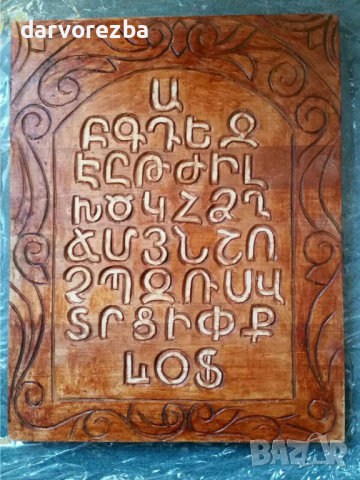 darvorezba
Ա
ԲԳԴԵԶ
ԷԸԹԺԻԼ
ԽԾԿՀՁՂ
ՃՄՅՆՇՈ
ՉՊՋՌՍՎ
ՏՐՑՒՓՔ
ԵՒՕՖ
BAZAR